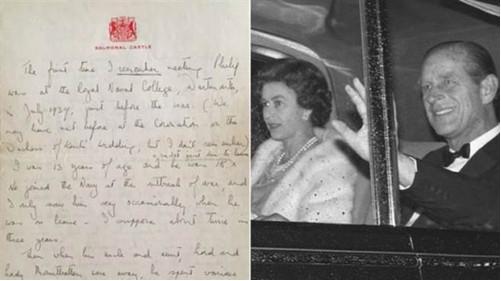 BALMORAL CASTLE
The first time I remember meeting Philip
was at the Royal Naval College, Dartmouth,
in July 1939, just before the war. (We
may have met before at the Coronation or the
Duchess of Kent's wedding, but I don't remember)
I was 13 years of age and he was 18
He joined the Navy at the outbreak of war and
I only saw him very occasionally when he
was on leave - I suppose about twice in
three years.
Then when his uncle and aunt, Lord and
Lady Mountbatten were away, he spent various